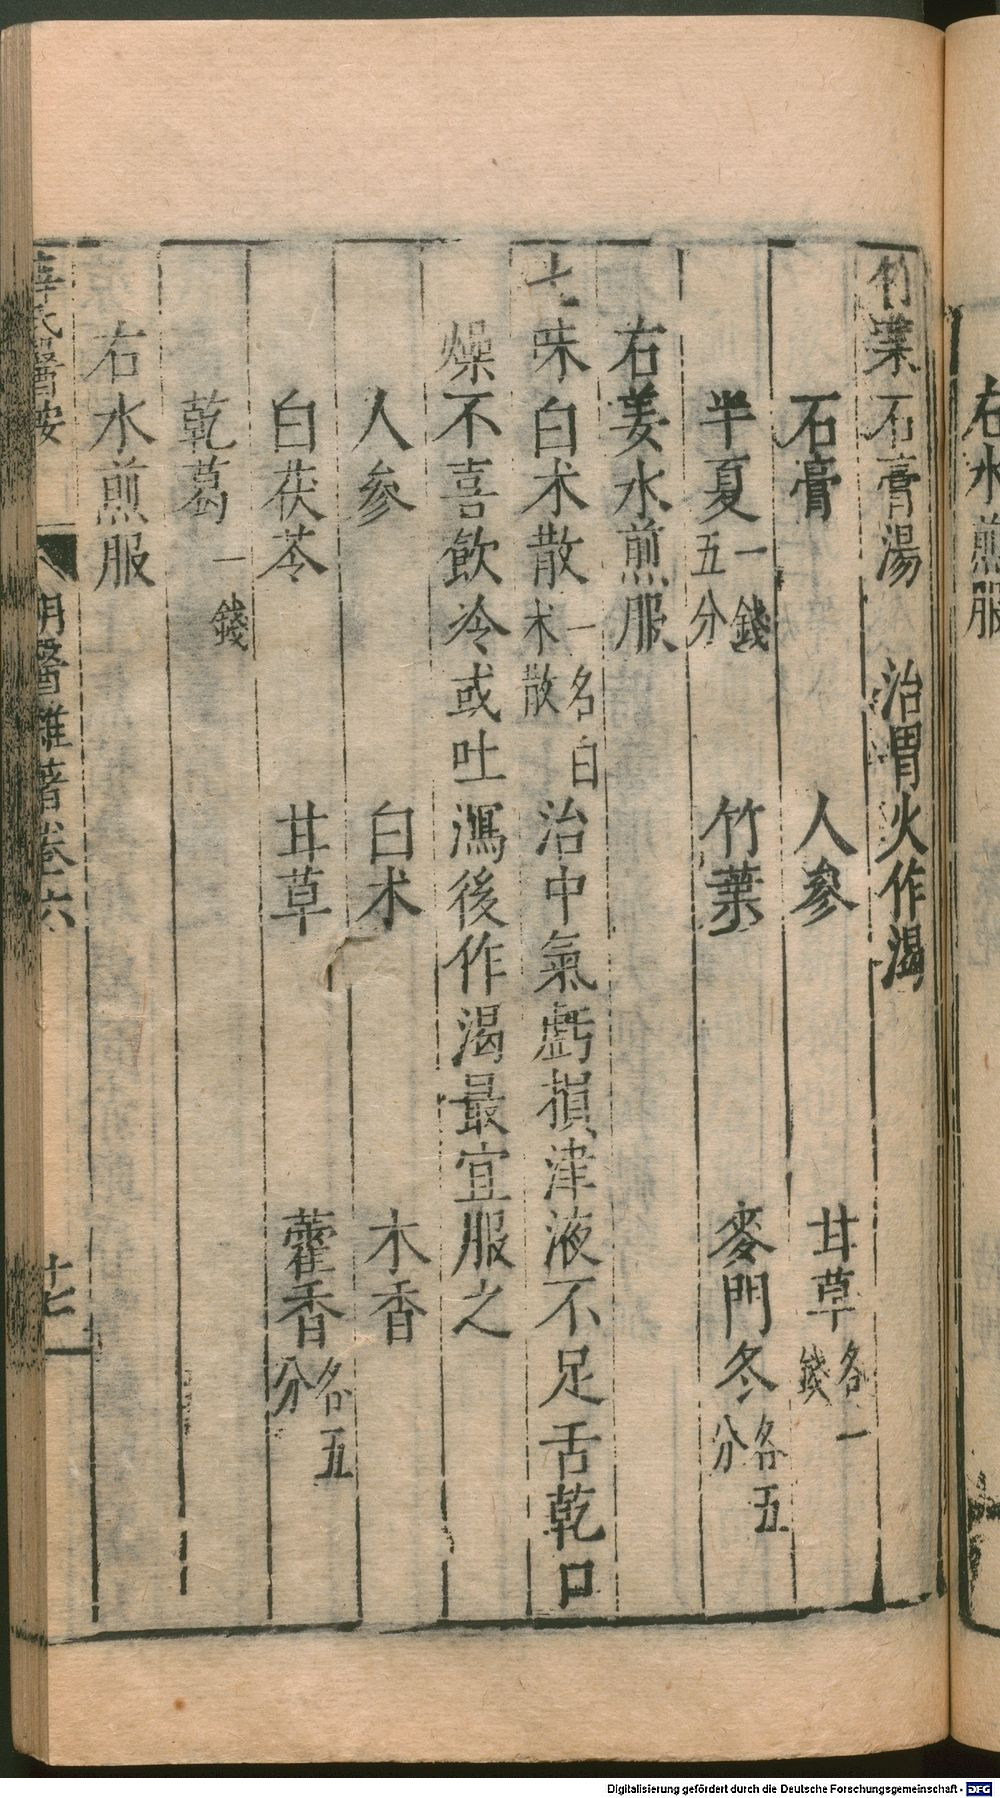 右水煎服
竹葉石膏湯 治胃火作渴
石膏 人參 甘草各一錢
半夏一錢五分 竹葉 麥門冬各五分
右姜水煎服
七味白术散一名白术散 治中氣虧損津液不足舌乾口
燥不喜飲冷或吐瀉後作渴最宜服之
人參 白术 木香
白茯苓 甘草 藿香各五分
乾葛一錢
右水煎服
薛氏醫按 明醫雜著卷六 廿七
Digitalisierung gefördert durch die Deutsche Forschungsgemeinschaft - DFG